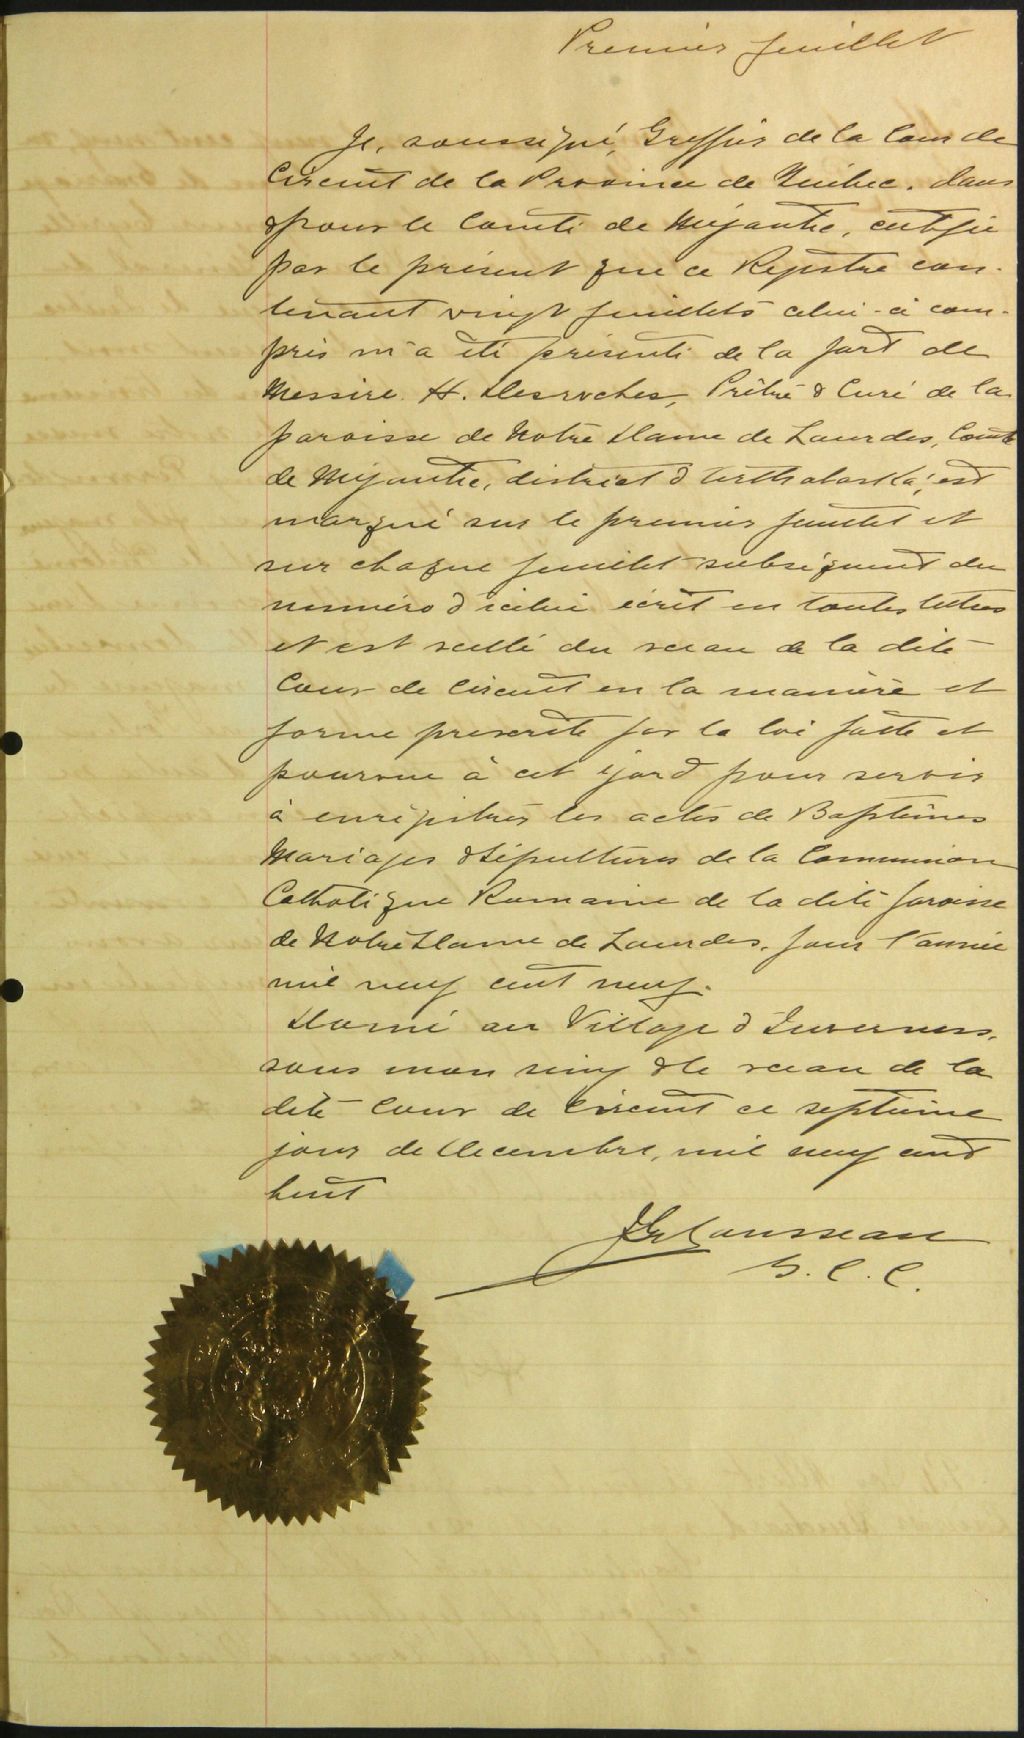 Premier feuillet
Je, soussigné, Greffier de la Cour de
Circuit de la Province de Québec, dans
& pour le Comté de Mégantic, certifie
par le présent que ce Registre con-
tenant vingt feuillets celui-ci com-
pris m'a été présenté de la part de
Messire H. Desroches, Prêtre & Curé de la
paroisse de Notre Dame de Lourdes, Comté
de Mégantic, district d'Arthabaska, est
marqué sur le premier feuillet et
sur chaque feuillet subséquent du
numéro d'icelui écrit en toutes lettres
et est scellé du sceau de la dite
Cour de Circuit en la manière et
forme prescrite par la loi faite et
pourvue à cet égard pour servir
à enrégistrer les actes de Baptêmes
Mariages & Sépultures de la Communion
Catholique Romaine de la dite paroisse
de Notre Dame de Lourdes, pour l'année
mil neuf cent neuf.
Donné au Village d'Inverness,
sous mon seing & le sceau de la
dite Cour de Circuit ce septième
jour de Decembre, mil neuf cent
huit
Rousseau
G. C. C.